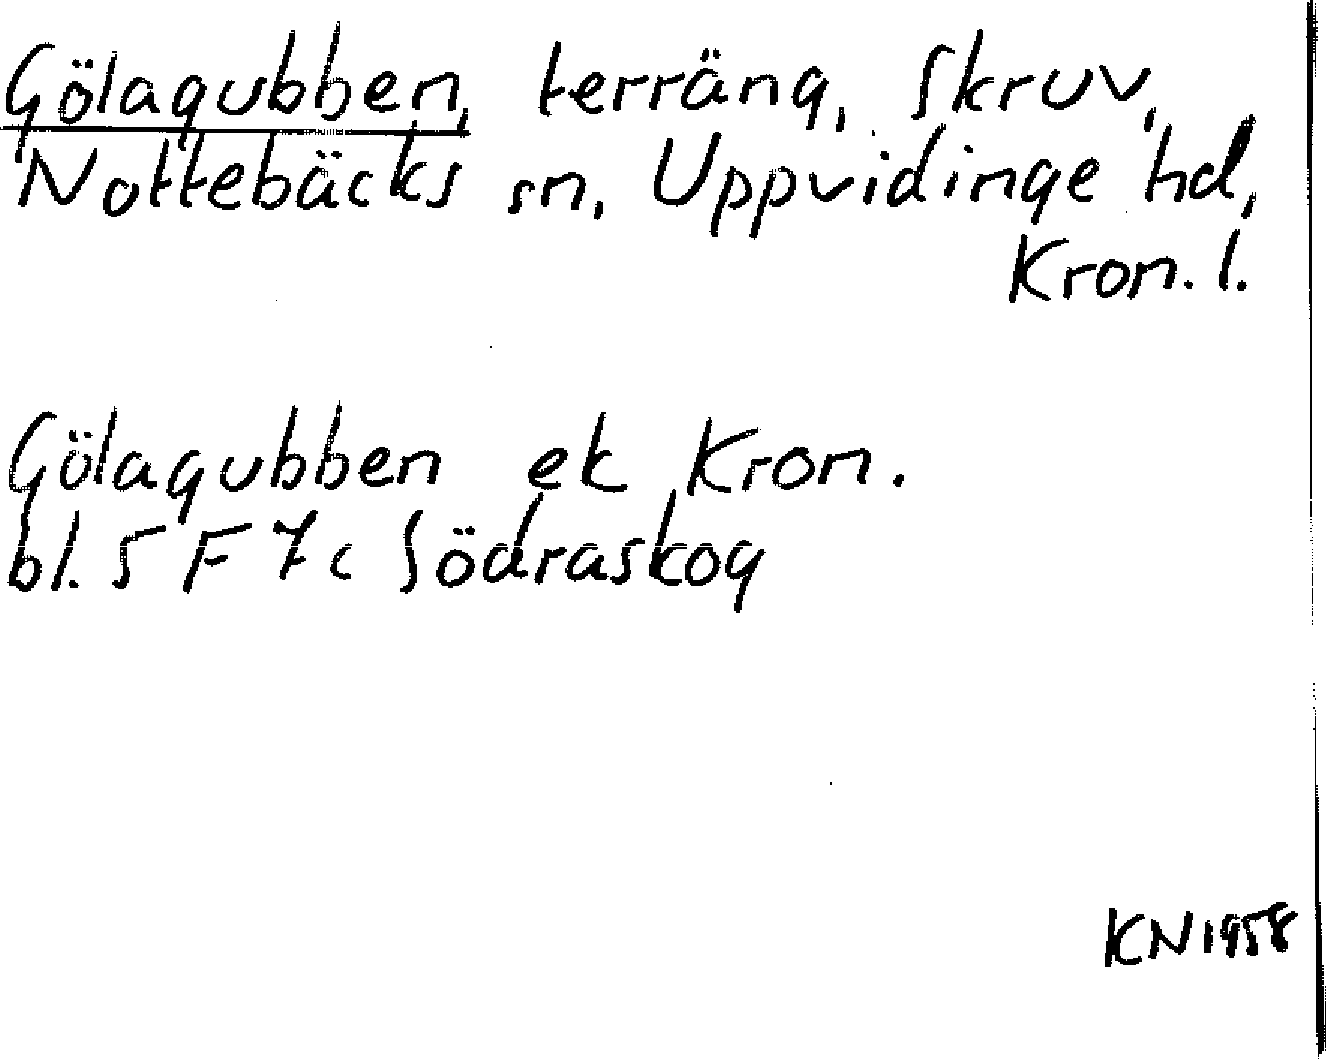 Gölagubben, terräng, Skruv,
Nottebäcks sn, Uppvidinge hd,
Kron. l.
Gölagubben ek Kron.
bl. 5 F 7c Södraskog
KN 1958